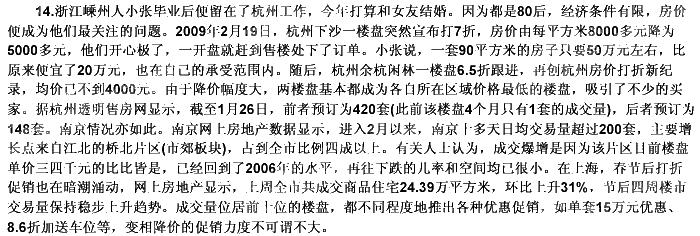 14.浙江嵊州人小张毕业后便留在了杭州工作，今年打算和女友结婚。因为都是80后，经济条件有限，房价
便成为他们最关注的问题。2009年2月19日，杭州下沙一楼盘突然宣布打7折，房价由每平方米8000多元降为
5000多元，他们开心极了，一开盘就赶到售楼处下了订单。小张说，一套90平方米的房子只要50万元左右，比
原来便宜了20万元，也在自己的承受范围内。随后，杭州余杭闲林一楼盘6.5折跟进，再创杭州房价打折新纪
录，均价已不到4000元。由于降价幅度大，两楼盘基本都成为各自所在区域价格最低的楼盘，吸引了不少的买
家。据杭州透明售房网显示，截至1月26日，前者预订为420套(此前该楼盘4个月只有1套的成交量)，后者预订为
148套。南京情况亦如此。南京网上房地产数据显示，进入2月以来，南京十多天日均交易量超过200套，主要增
长点来自江北的桥北片区(市郊板块)，占到全市比例四成以上。有关人士认为，成交爆增是因为该片区目前楼盘
单价三四千元的比比皆是，已经回到了2006年的水平，再往下跌的几率和空间均已很小。在上海，春节后打折
促销也在暗潮涌动，网上房地产显示，上周全市共成交商品住宅24.39万平方米，环比上升31%，节后四周楼市
交易量保持稳步上升趋势。成交量位居前十位的楼盘，都不同程度地推出各种优惠促销，如单套15万元优惠、
8.6折加送车位等，变相降价的促销力度不可谓不大。